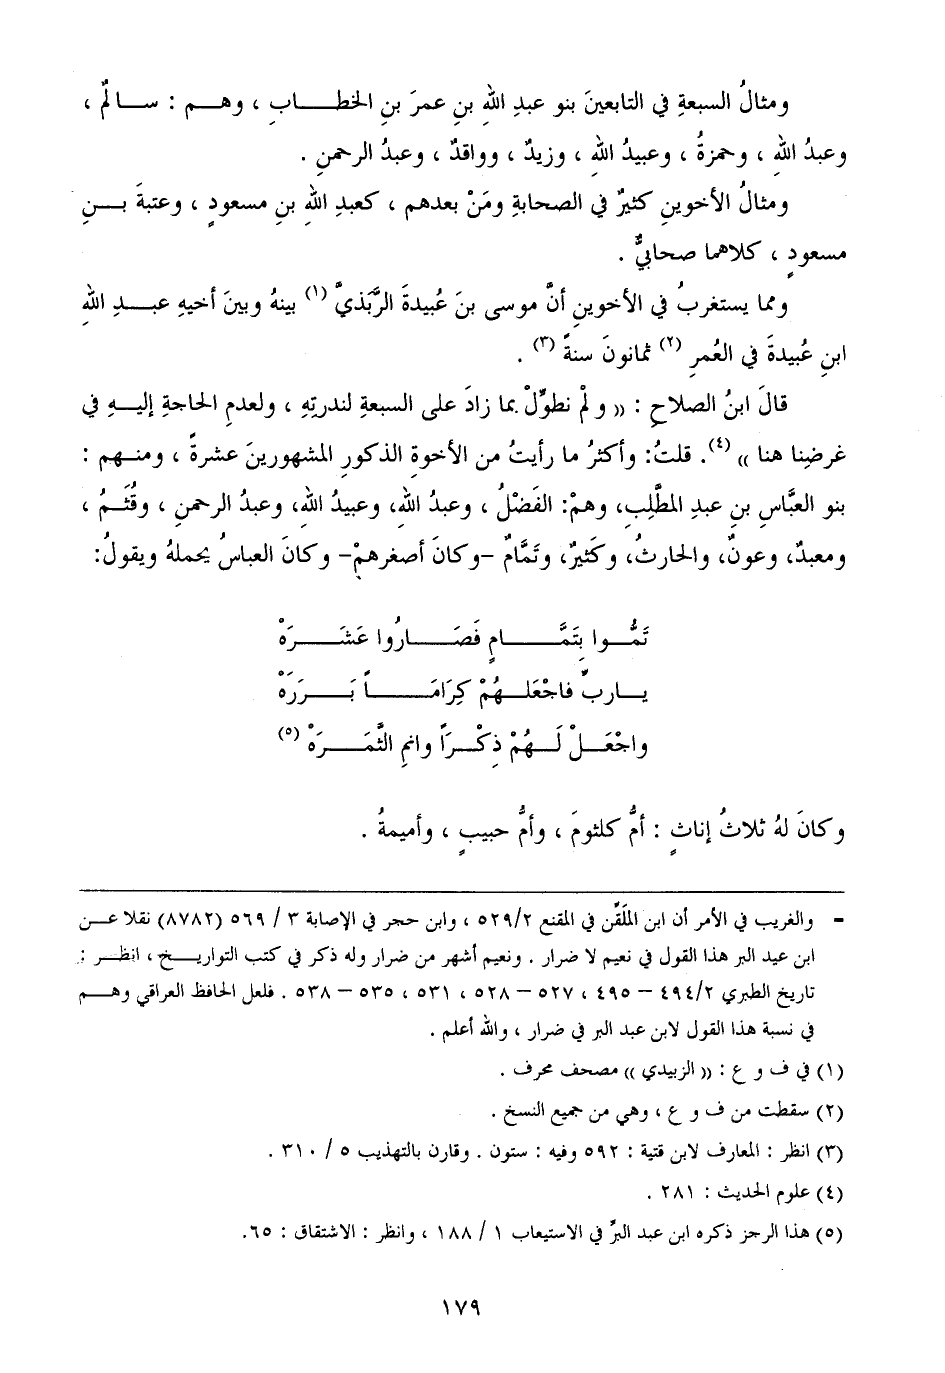 ومثالُ السبعةِ في التابعينَ بنو عبدِ اللهِ بنِ عمرَ بنِ الخطـــابِ ، وهـم : ســـالمٌ ،
وعبدُ اللهِ ، وحمزةُ ، وعبيدُ اللهِ ، وزيدٌ ، وواقدٌ ، وعبدُ الرحمنِ .
ومثالُ الأخوينِ كثيرٌ في الصحابةِ ومَنْ بعدهم ، كعبدِ اللهِ بنِ مسعودٍ ، وعتبةَ بــنِ
مسعودٍ ، كلاهما صحابيٌّ .
ومما يستغربُ في الأخوينِ أنَّ موسى بنَ عُبيدةَ الرَّبَذيَّ (١) بينهُ وبينَ أخيهِ عبـدِ اللهِ
ابنِ عُبيدةَ في العُمرِ (٢) ثمانونَ سنةً (٣) .
قالَ ابنُ الصلاحِ : « ولمْ نطوِّلْ بما زادَ على السبعةِ لندرتِهِ ، ولعدمِ الحاجةِ إليــهِ في
غرضِنا هنا » (٤). قلتُ: وأكثرُ ما رأيتُ من الأخوةِ الذكورِ المشهورينَ عشرةً ، ومنـهم :
بنو العبَّاسِ بنِ عبدِ المطَّلِبِ، وهمْ: الفَضْلُ ، وعبدُ اللهِ، وعبيدُ اللهِ، وعبدُ الرحمنِ ، وقُثَـم ،
ومعبدٌ، وعونٌ، والحارثُ، وكَثيرٌ، وتَمَّامٌ -وكانَ أصغرهمْ- وكانَ العباسُ يحملهُ ويقولُ:
تَمُّـــوا بِتَمَّـــــامٍ فَصَـــارُوا عَشَـــرَهْ
يـــاربِّ فاجْعَلــهُمْ كِرَامَـــــاً بَـــرَرَهْ
واجْعَــلْ لَــهُمْ ذِكْــرَاً وانمِ الثَّمَـــرَهْ (٥)
وكانَ لهُ ثلاثُ إناثٍ : أمُّ كلثومَ ، وأمُّ حبيبٍ ، وأميمةُ .
= والغريب في الأمر أن ابن الملَقِّن في المقنع ٥٢٩/٢ ، وابن حجر في الإصابة ٣ / ٥٦٩ (٨٧٨٢) نقلا عـن
ابن عبد البر هذا القول في نعيم لا ضرار . ونعيم أشهر من ضرار وله ذكر في كتب التواريــخ ، انظـر :
تاريخ الطبري ٤٩٤/٢ – ٤٩٥ ، ٥٢٧ – ٥٢٨ ، ٥٣١ ، ٥٣٥ – ٥٣٨ . فلعل الحافظ العراقي وهــم
في نسبة هذا القول لابن عبد البر في ضرار ، والله أعلم .
(١) في ف و ع : « الزبيدي » مصحف محرف .
(٢) سقطت من ف و ع ، وهي من جميع النسخ .
(٣) انظر : المعارف لابن قتية : ٥٩٢ وفيه : ستون . وقارن بالتهذيب ٥ / ٣١٠ .
(٤) علوم الحديث : ٢٨١ .
(٥) هذا الرجز ذكره ابن عبد البرِّ في الاستيعاب ١ / ١٨٨ ، وانظر : الاشتقاق : ٦٥.
١٧٩